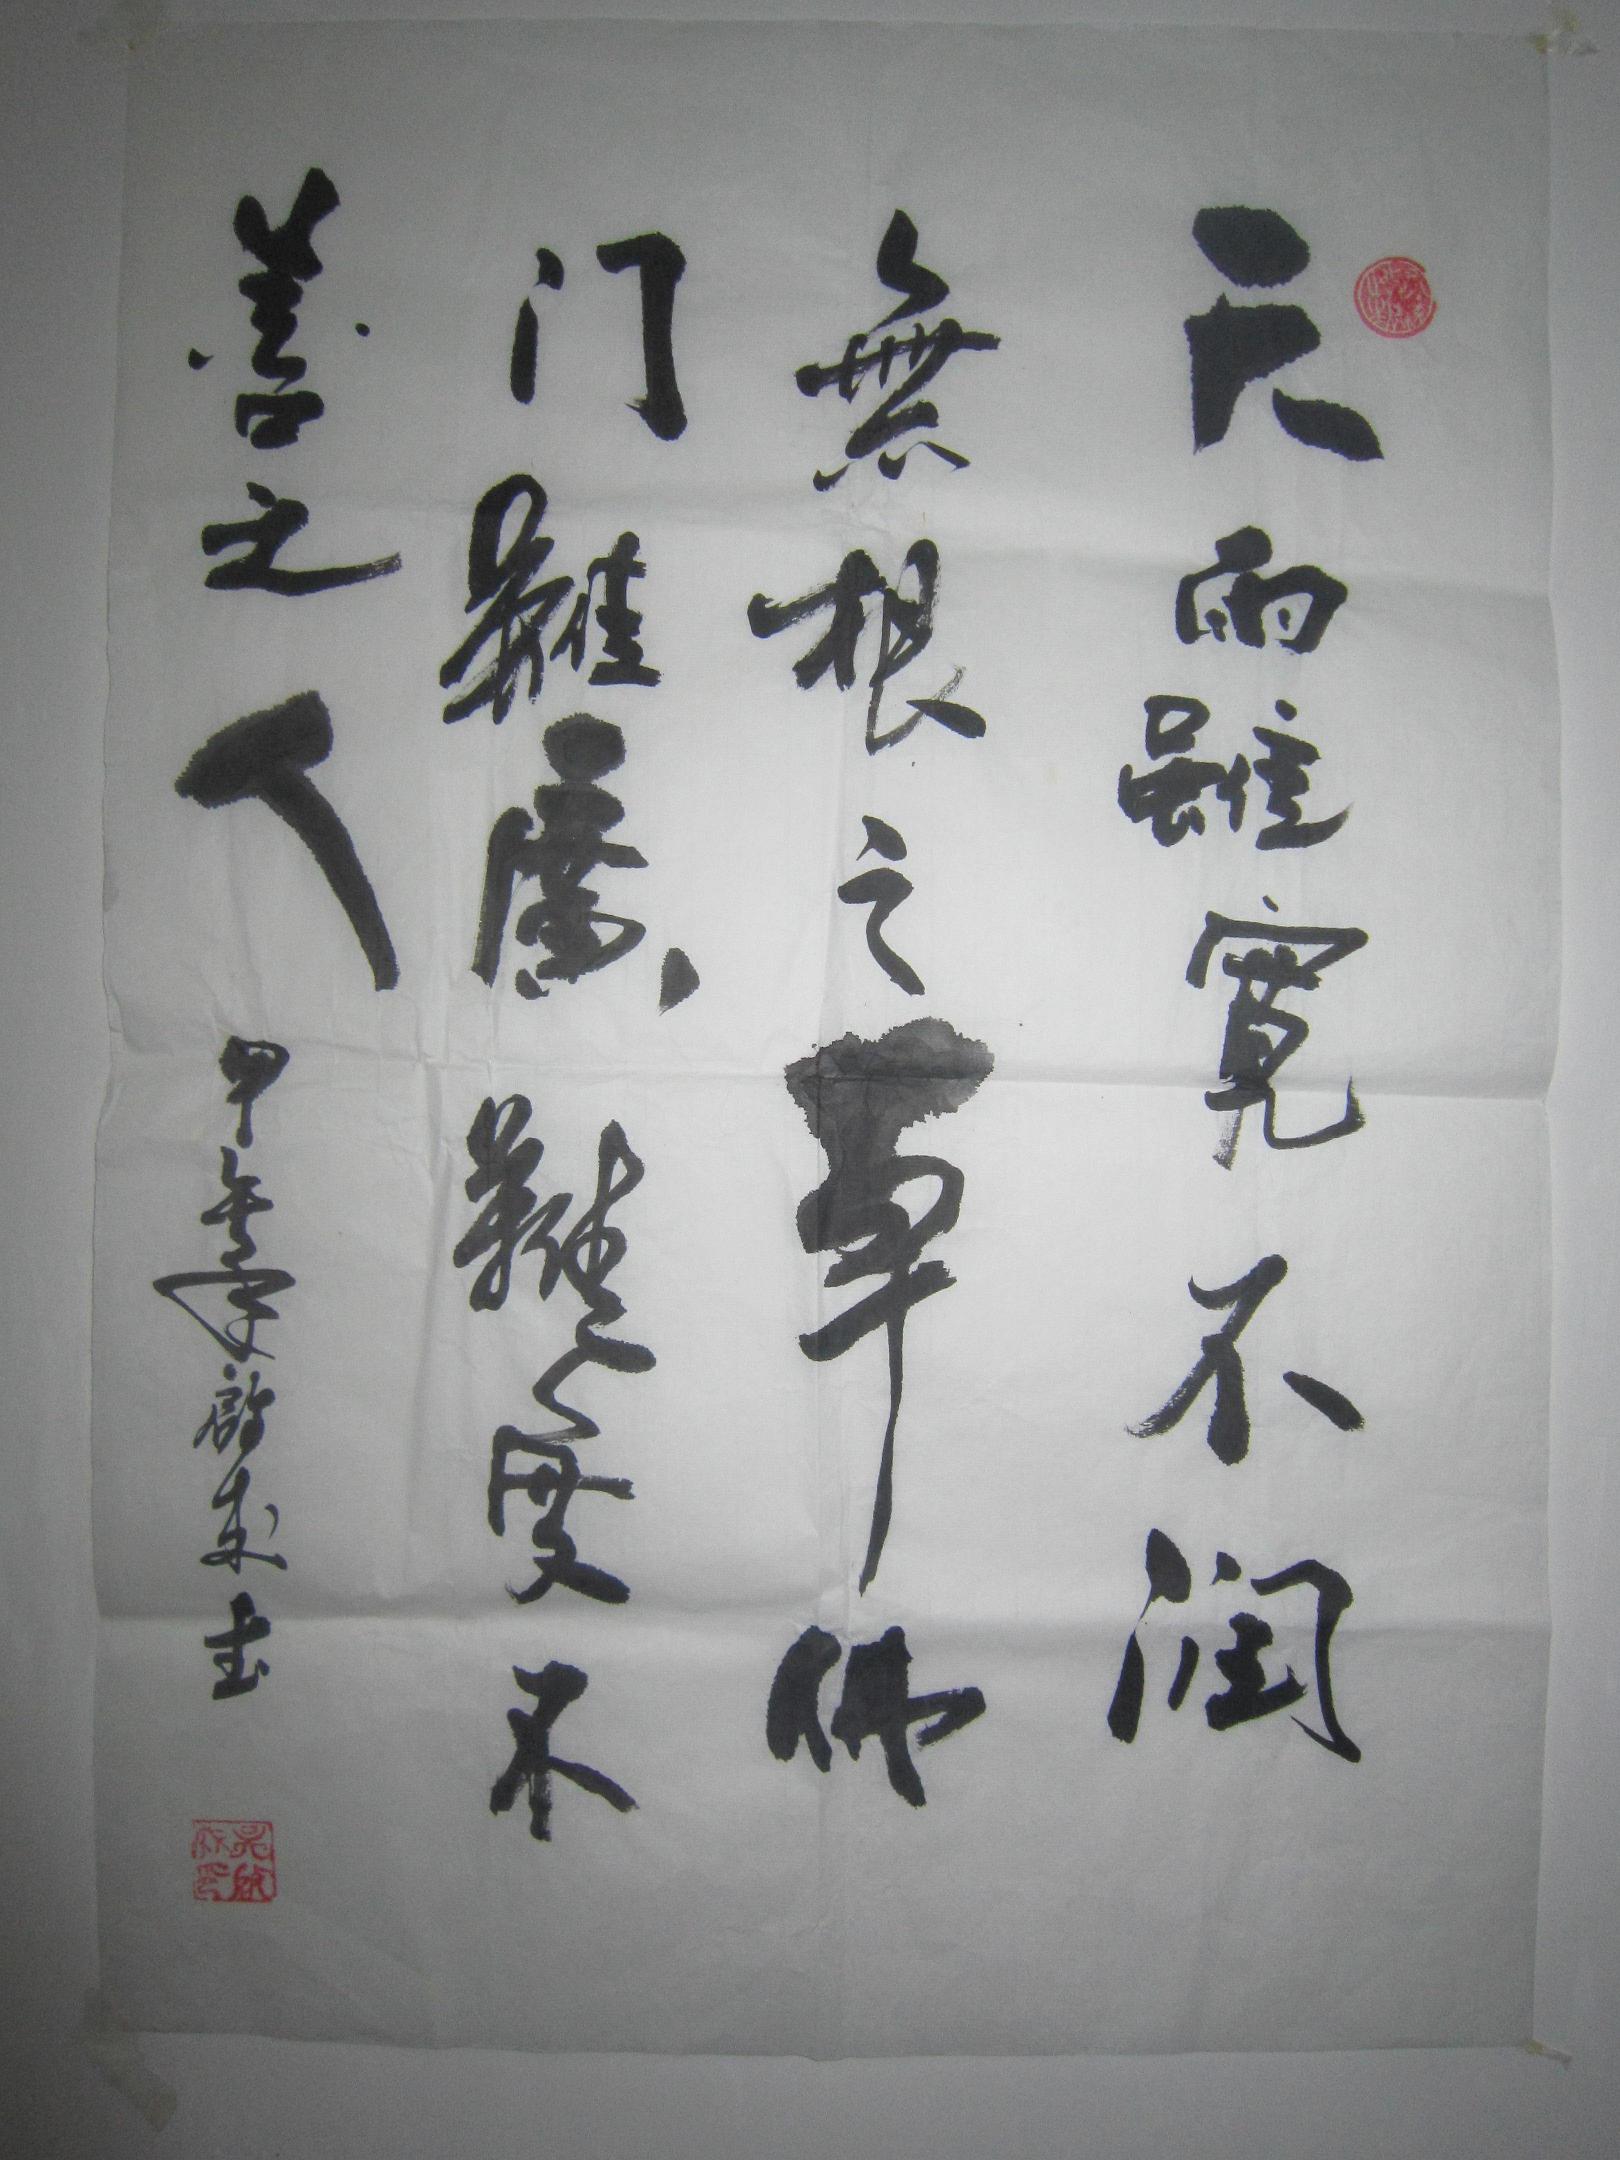 天雨雖寬不润
無根之草佛
门雖廣難度不
善之人
甲午年啟成書